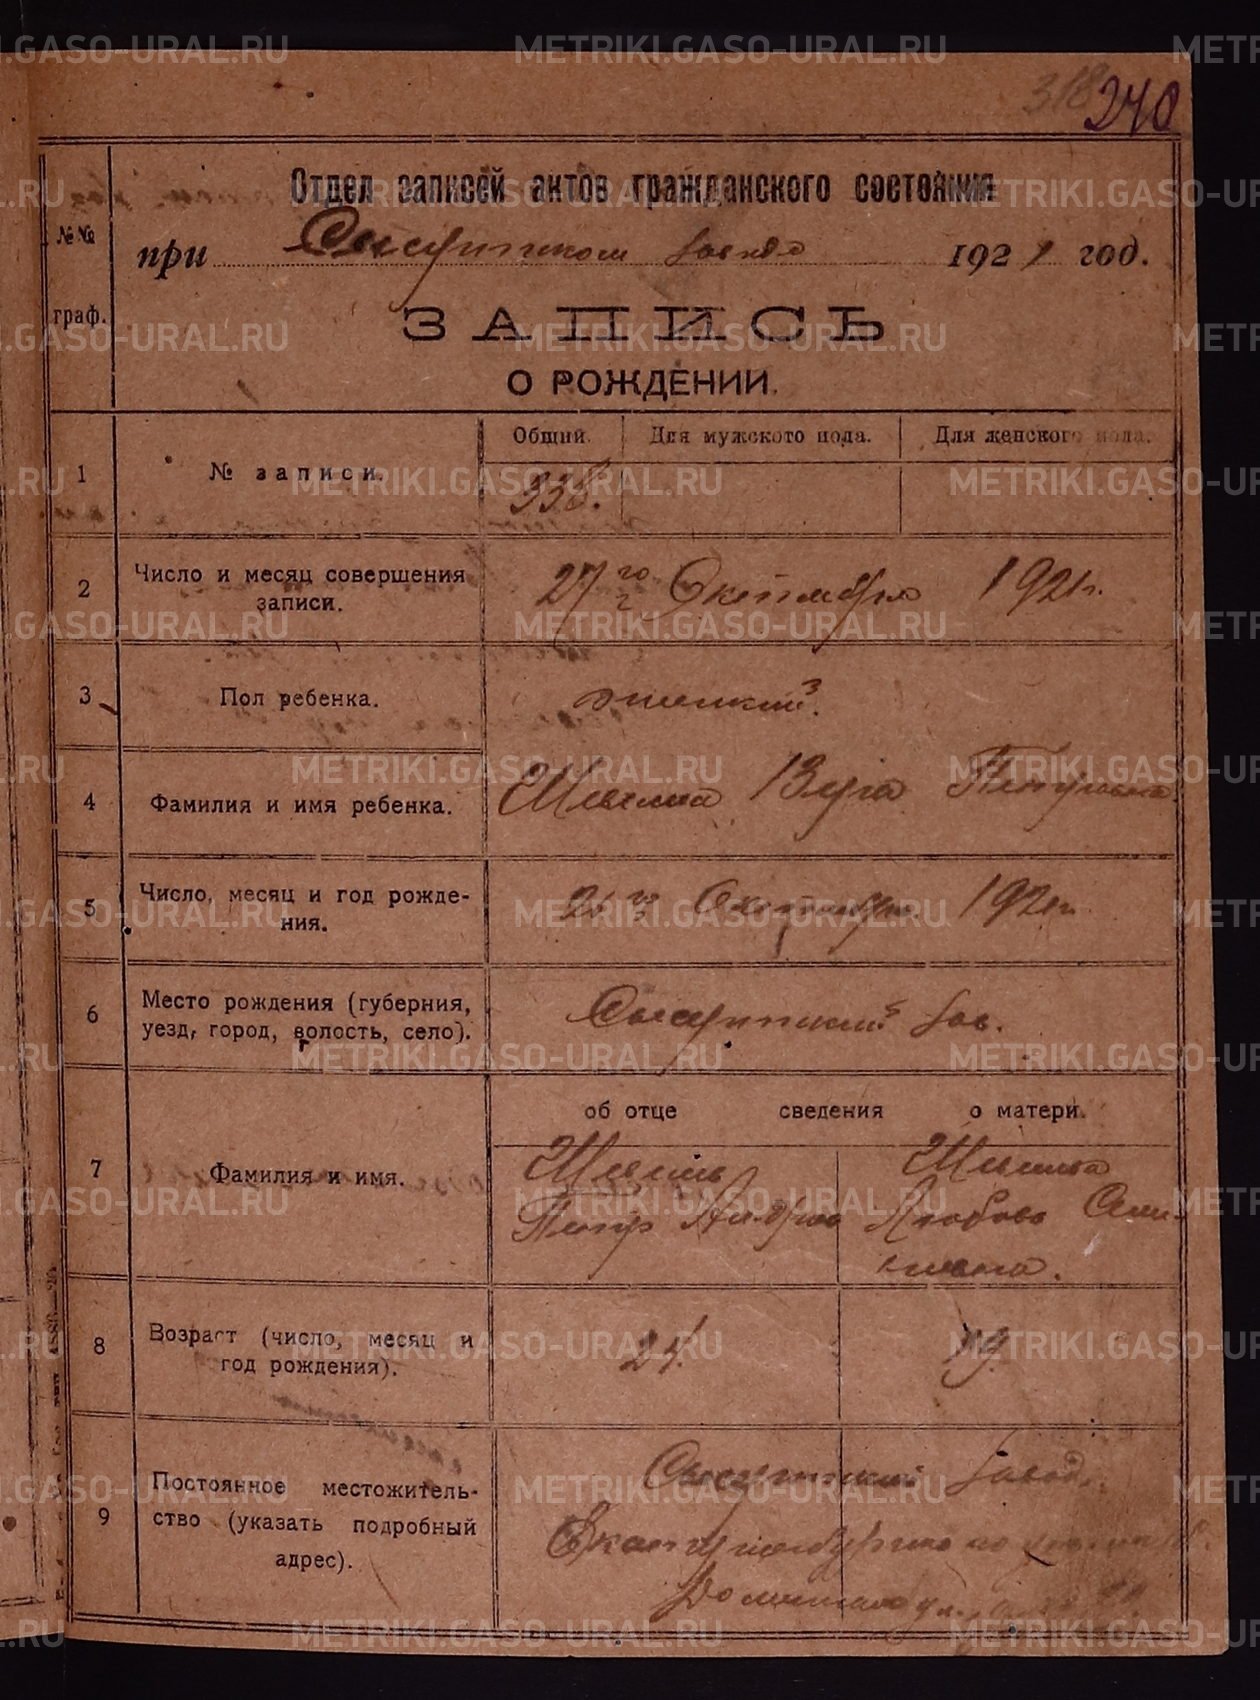 318 240
Отдел записей актов гражданского состояния
№№ при Сысертском заводе 1921 год.
граф.
ЗАПИСЬ
О РОЖДЕНИИ.
Общий. Для мужского пола. Для женского пола.
1 № записи. 338.
2 Число и месяц совершения записи. 27го Октября 1921г.
3 Пол ребенка. женский.
4 Фамилия и имя ребенка. Петровна
5 Число, месяц и год рождения. Октября 1921г.
6 Место рождения (губерния, уезд, город, волость, село). Сысертский зав.
об отце сведения о матери.
7 Фамилия и имя.
Петр Любовь
8 Возраст (число, месяц и год рождения). 24. 19.
9 Постоянное местожительство (указать подробный адрес).
Сысертский завод,
Екатеринбургского
ул.,
METRIKI.GASO-URAL.RU